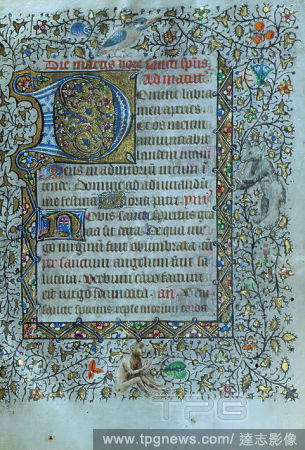 Die martis hore sancti spus
ad matut
Domine labia
mea aperies
Et os meum
annuntiabit
laudem tuam
Deus in adiutorium meum in
tende. Domine ad adiuuandum
me festina Gloria patri
Nobis sancti spiritus gra
tia sit data. De qua uir
go uirginum fuit obumbrata
per sanctum angelum fuit sa
lutata. Uerbum caro factum
est uirgo fecundata. an. Ueni
sancte spiritus reple tuorum corda
TPG
www.tpgnews.com/ 達志影像